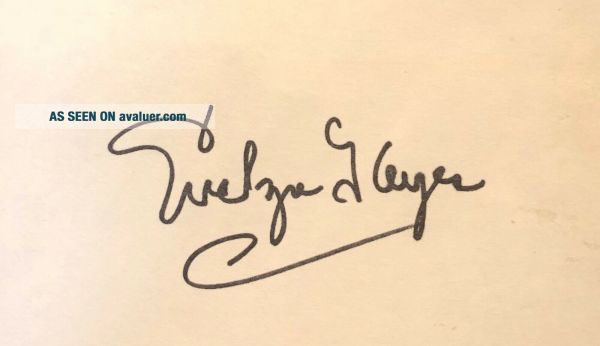 AS SEEN ON avaluer.com
Evelyn Hayes